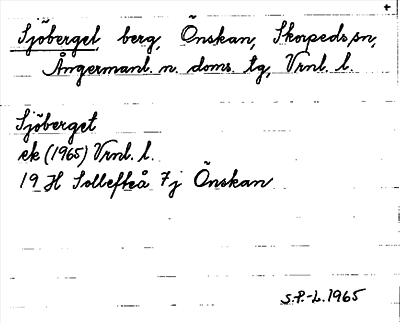 Sjöberget, berg, Önskan, Skorpeds sn,
Ångermanl. n. doms. tg, Vrnl. l.
Sjöberget
ek (1965) Vrnl. l.
19 H Sollefteå 7j Önskan
S.P.-L. 1965